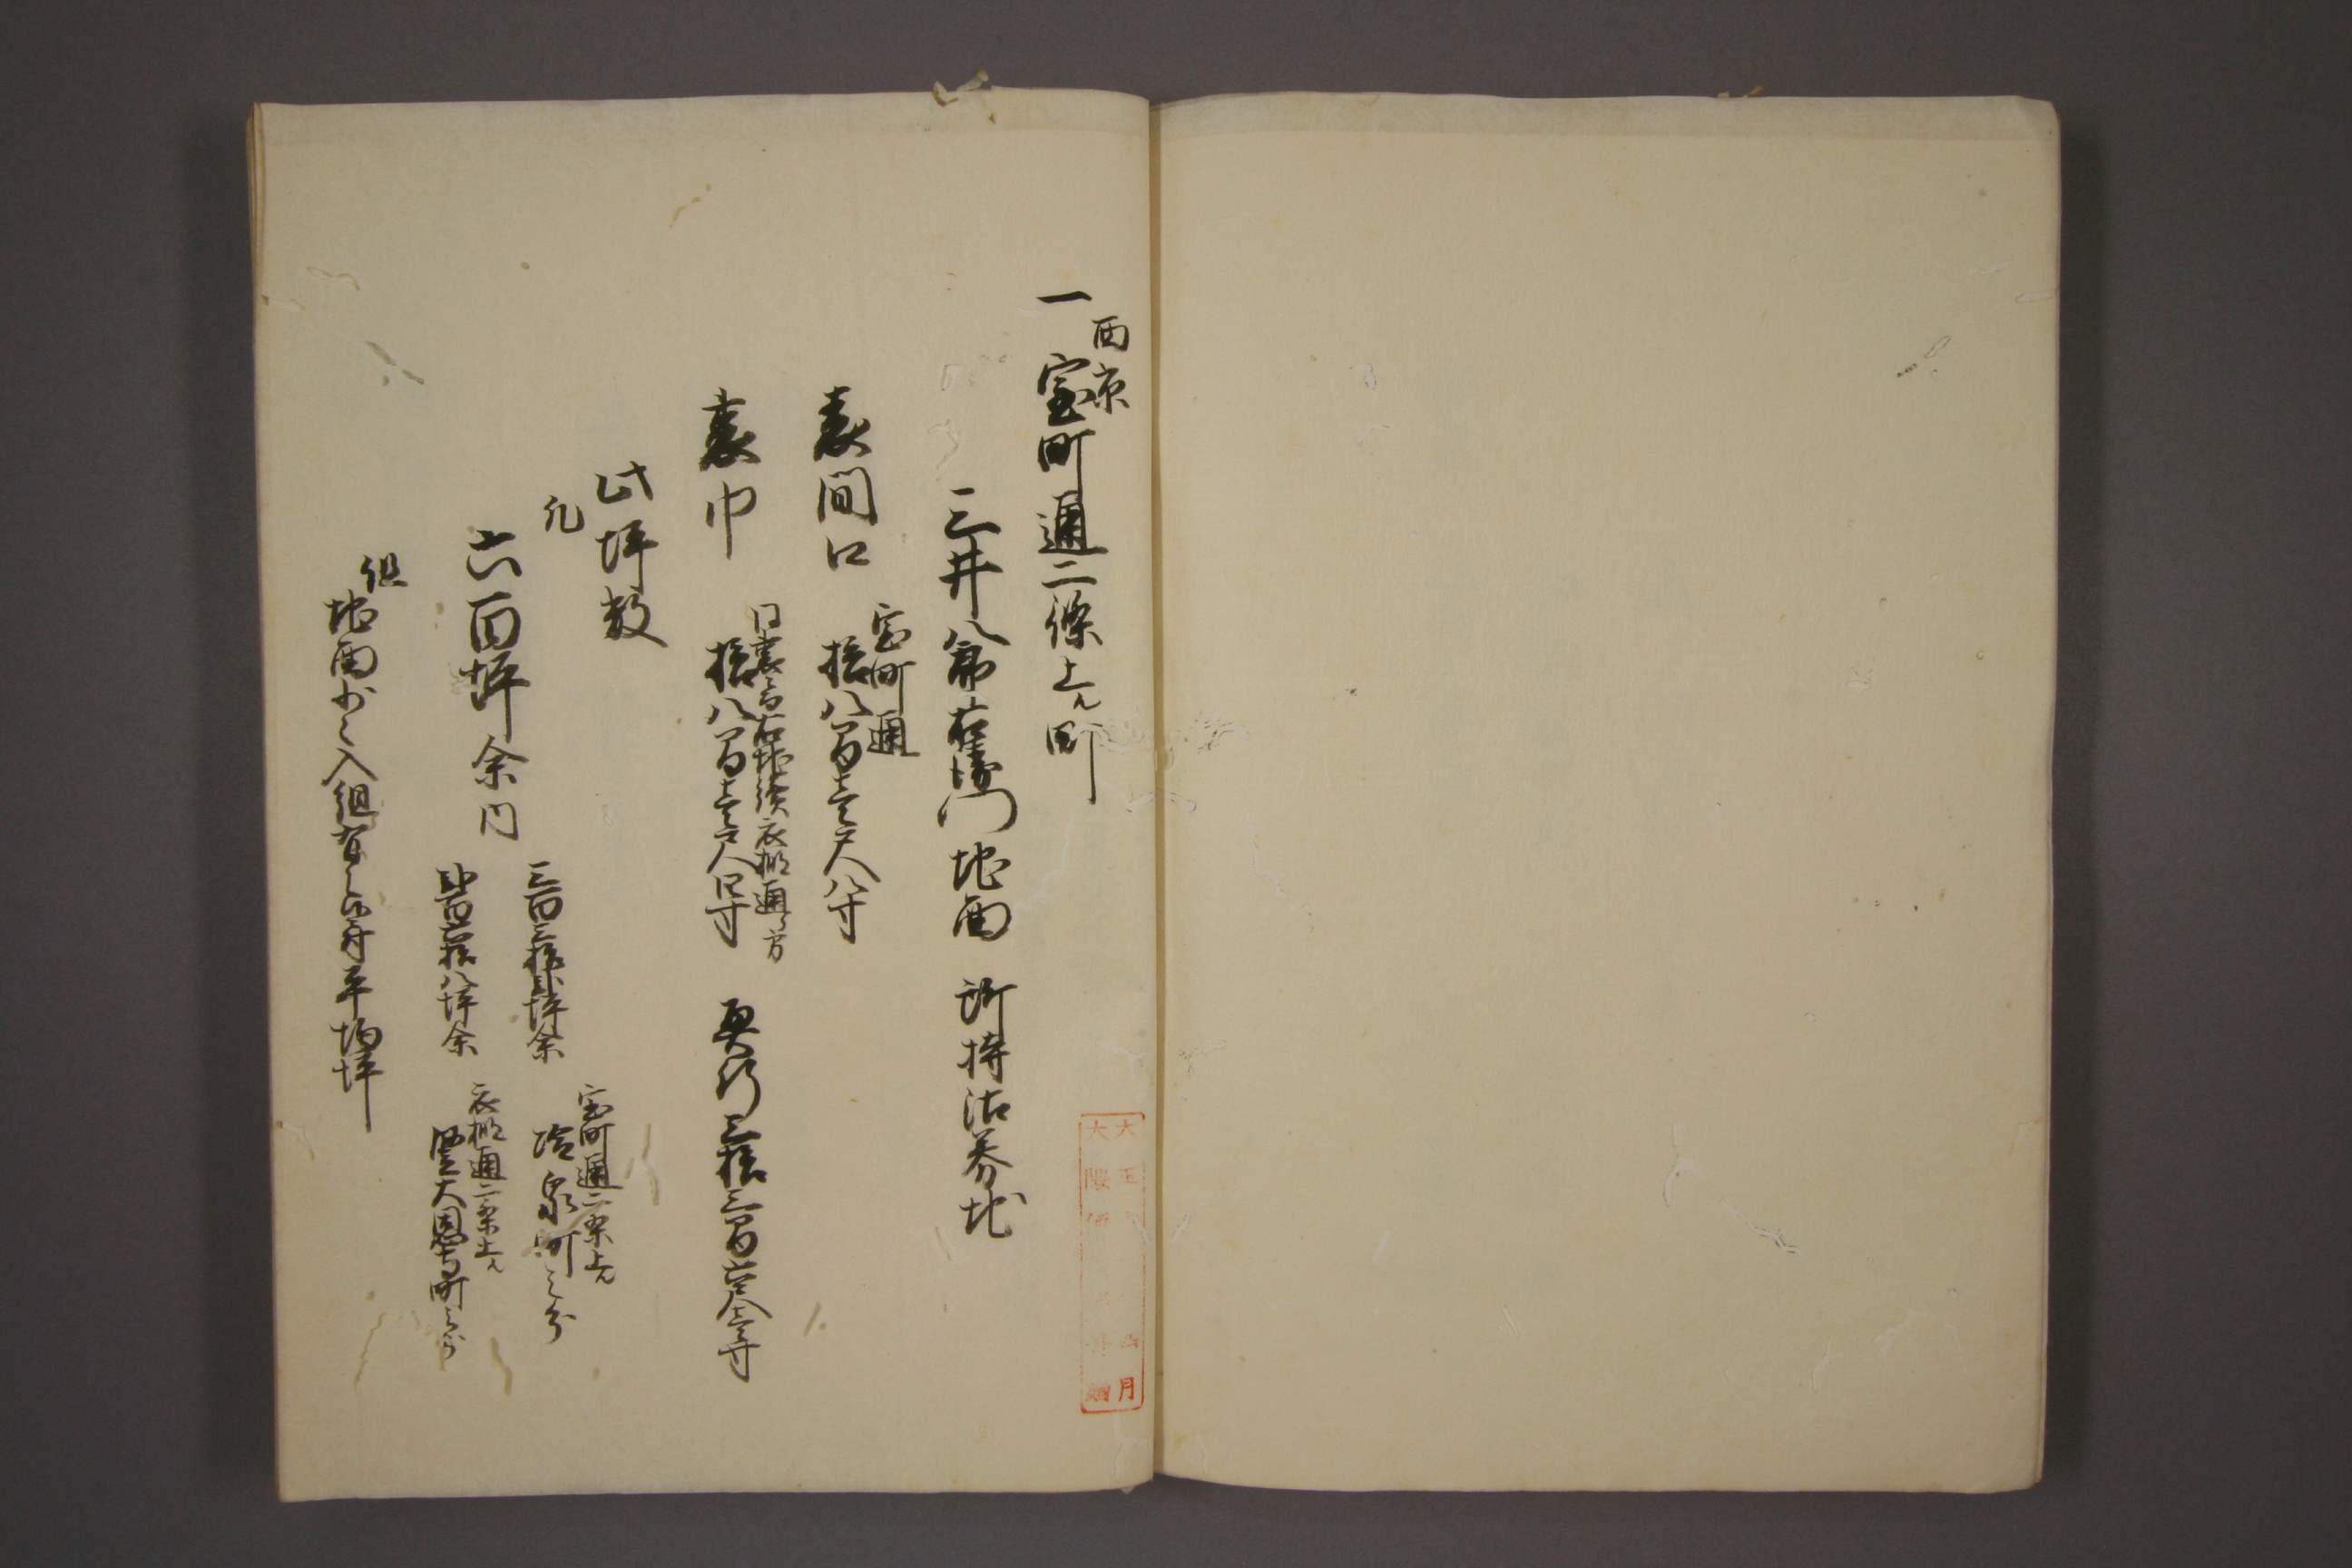 西京
一 室町通二條上ル町
三井八郎右衛門地面 所持沽券地
室町通
表間口 拾八間壱尺八寸
同裏ニ而右地続衣棚通り方
裏巾 拾八間壱尺四寸 奥行三拾三間
此坪数
凡
六百坪余 内
三百三拾弐坪余 室町通二条上ル
冷泉町之分
弐百六拾八坪余 衣棚通二条上ル
堅大恩寺町之分
但
地面少々入組有之候ニ付平均坪
大正
月
大隈